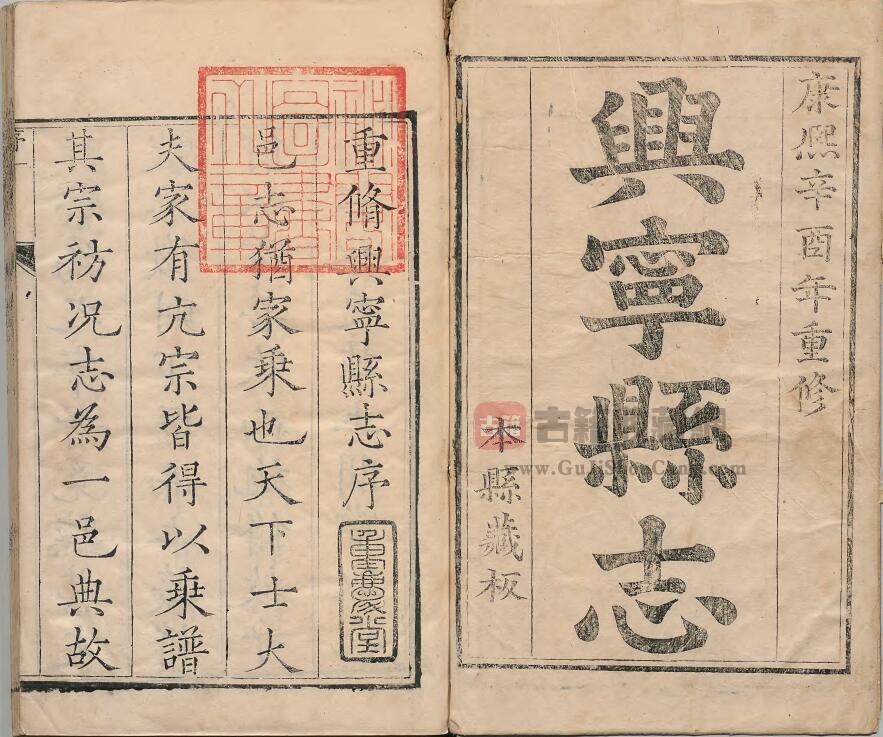 康熙辛酉年重修
興寧縣志
本縣藏板
重脩興寧縣志序
邑志猶家乘也天下士大
夫家有亢宗皆得以乘譜
其宗祊况志為一邑典故
古籍
www.GujiShuCang.com